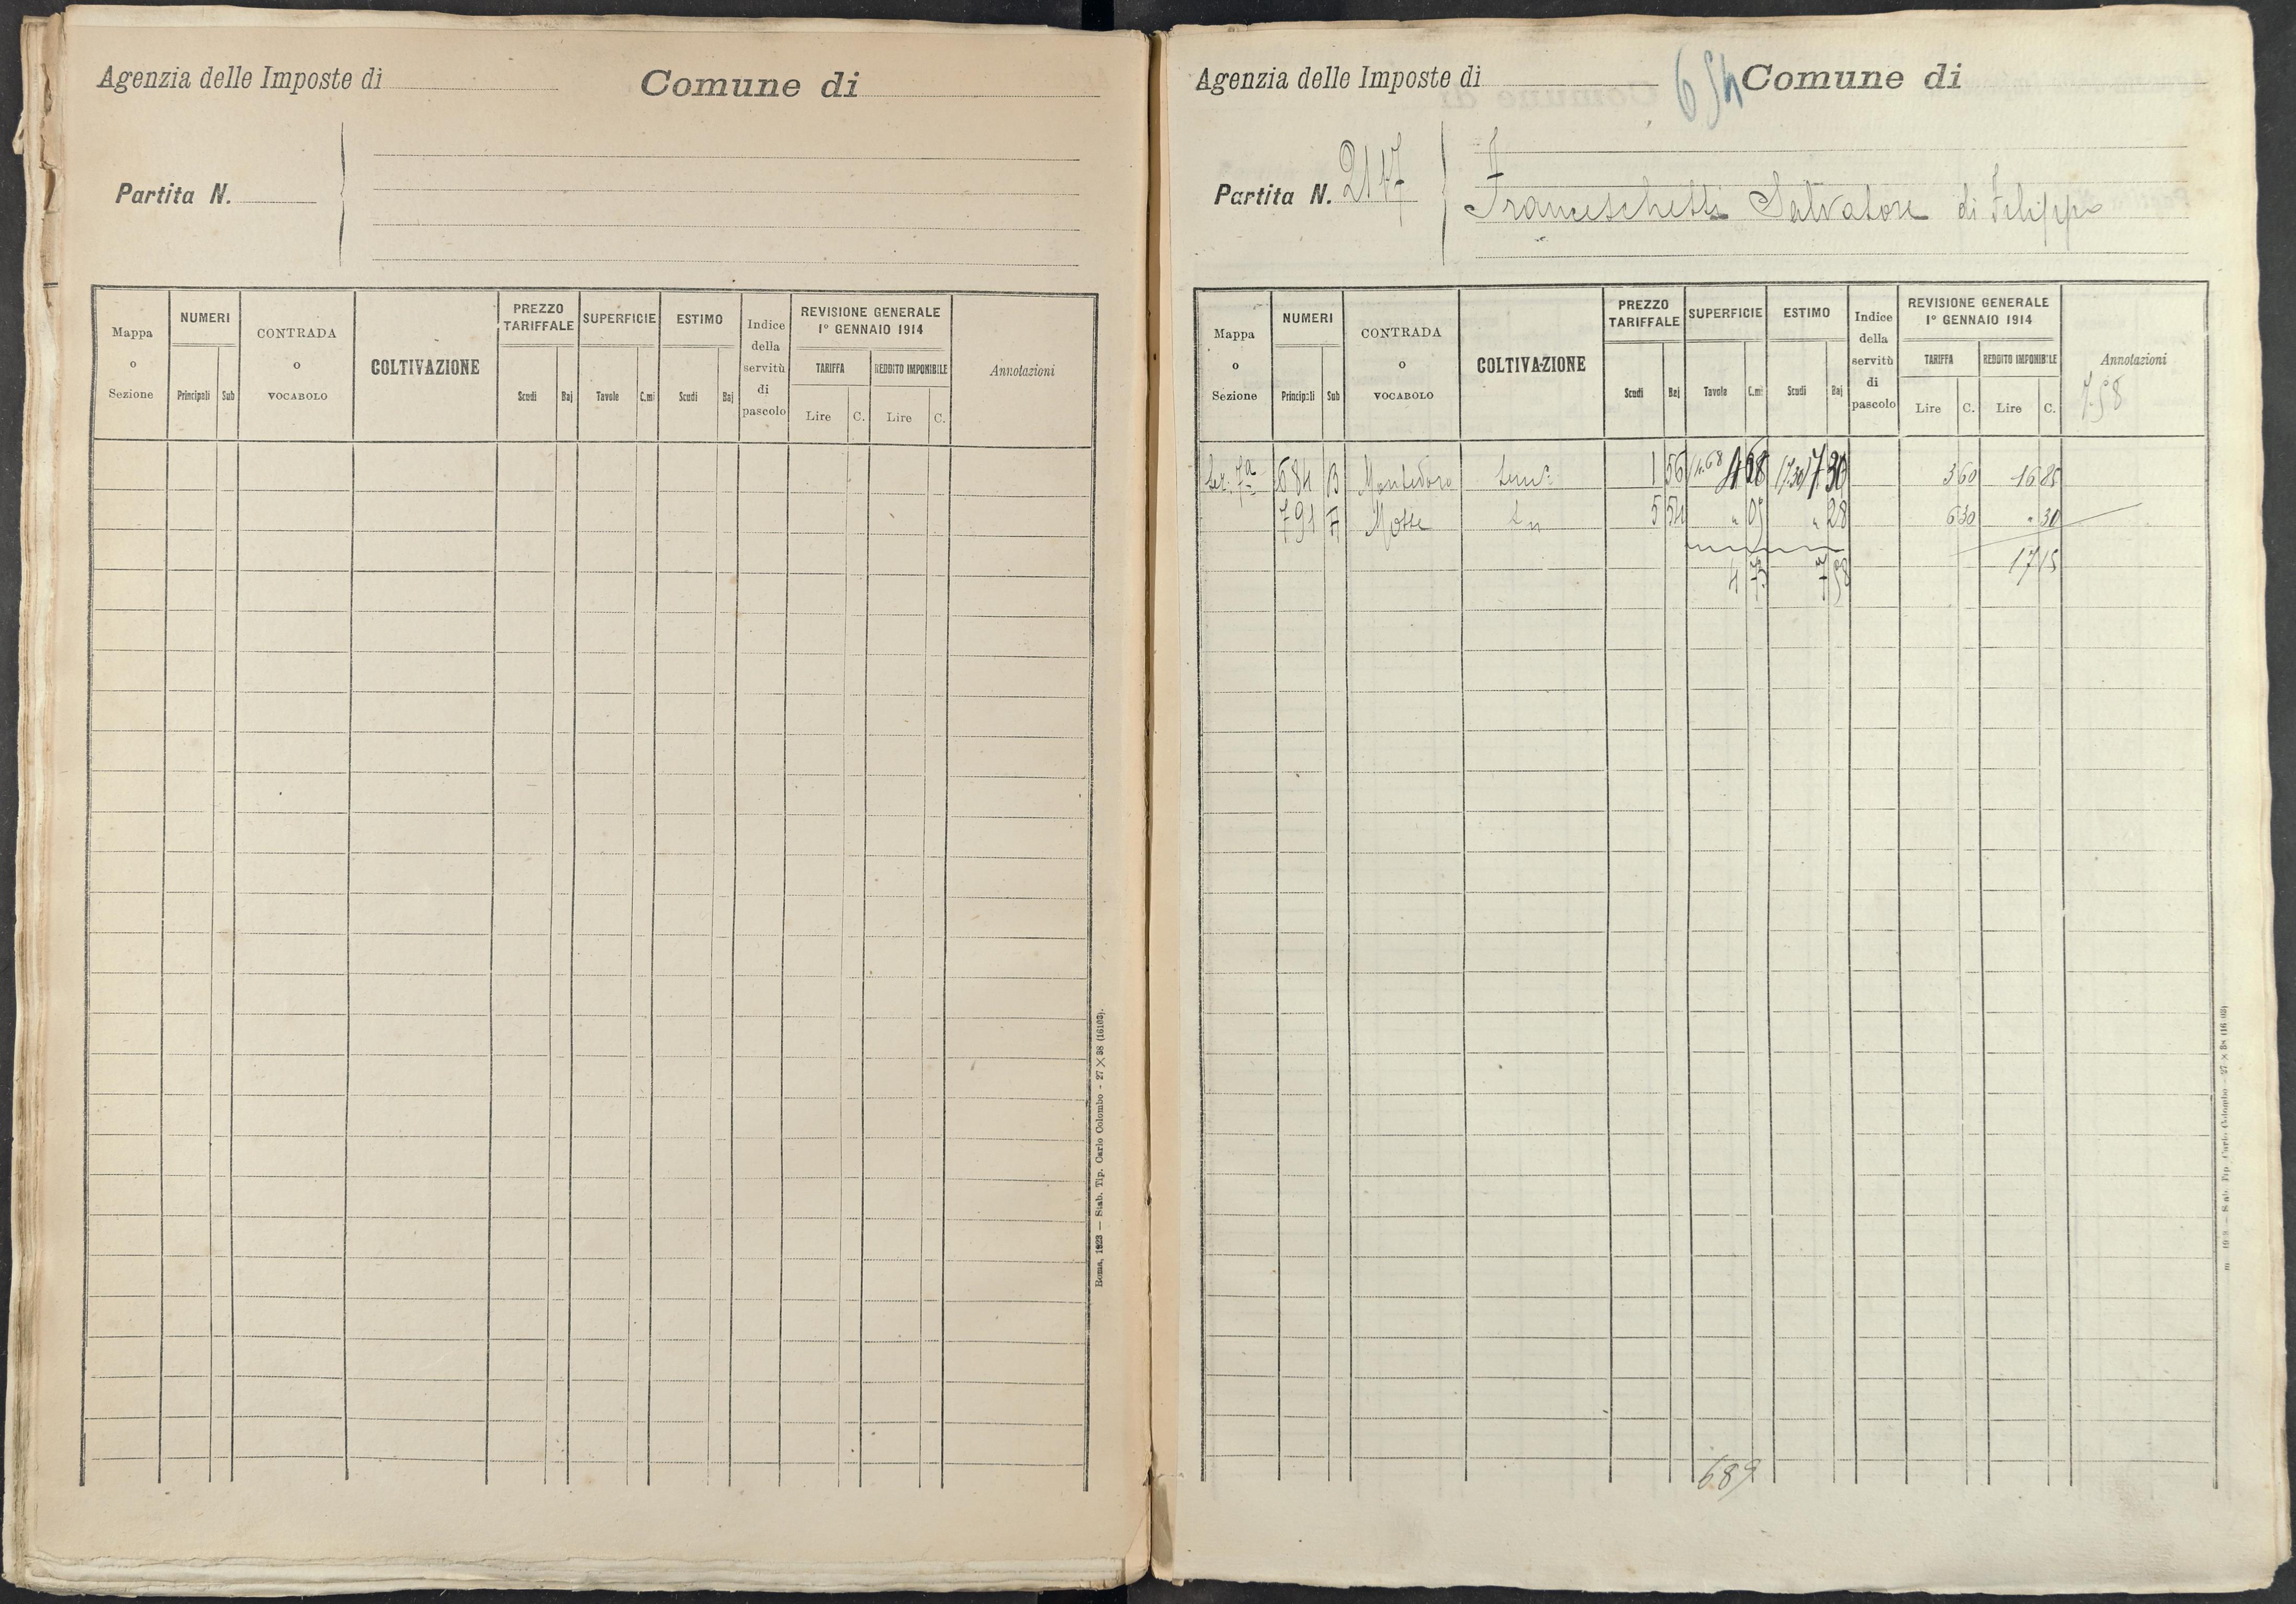 Agenzia delle Imposte di
Comune di
Partita N.
Mappa o Sezione
NUMERI
Principali
Sub
CONTRADA o VOCABOLO
COLTIVAZIONE
PREZZO TARIFFALE
Scudi
Baj
SUPERFICIE
Tavole
C.mi
ESTIMO
Scudi
Baj
Indice della servitù di pascolo
REVISIONE GENERALE
1° GENNAIO 1914
TARIFFA
REDDITO IMPONIBILE
Lire
C.
Lire
C.
Annotazioni
Roma, 1923 — Stab. Tip. Carlo Colombo - 27 × 38 (16103).
Agenzia delle Imposte di
654
Comune di
Partita N. 2117
Franceschetti Salvatore di Filippo
Mappa o Sezione
NUMERI
Principali
Sub
CONTRADA o VOCABOLO
COLTIVAZIONE
PREZZO TARIFFALE
Scudi
Baj
SUPERFICIE
Tavole
C.mi
ESTIMO
Scudi
Baj
Indice della servitù di pascolo
REVISIONE GENERALE
1° GENNAIO 1914
TARIFFA
REDDITO IMPONIBILE
Lire
C.
Lire
C.
Annotazioni
7.58
Sez. 7a 684 B Montedoro Sem° 1 56 (4.68 4 68 (7.30) 7 30 3 60 16 85
791 Motte 5 54 " 05 " 28 6 30 " 30
4 73 7 58 17 15
689
Stab. Tip. Carlo Colombo - 27 × 38